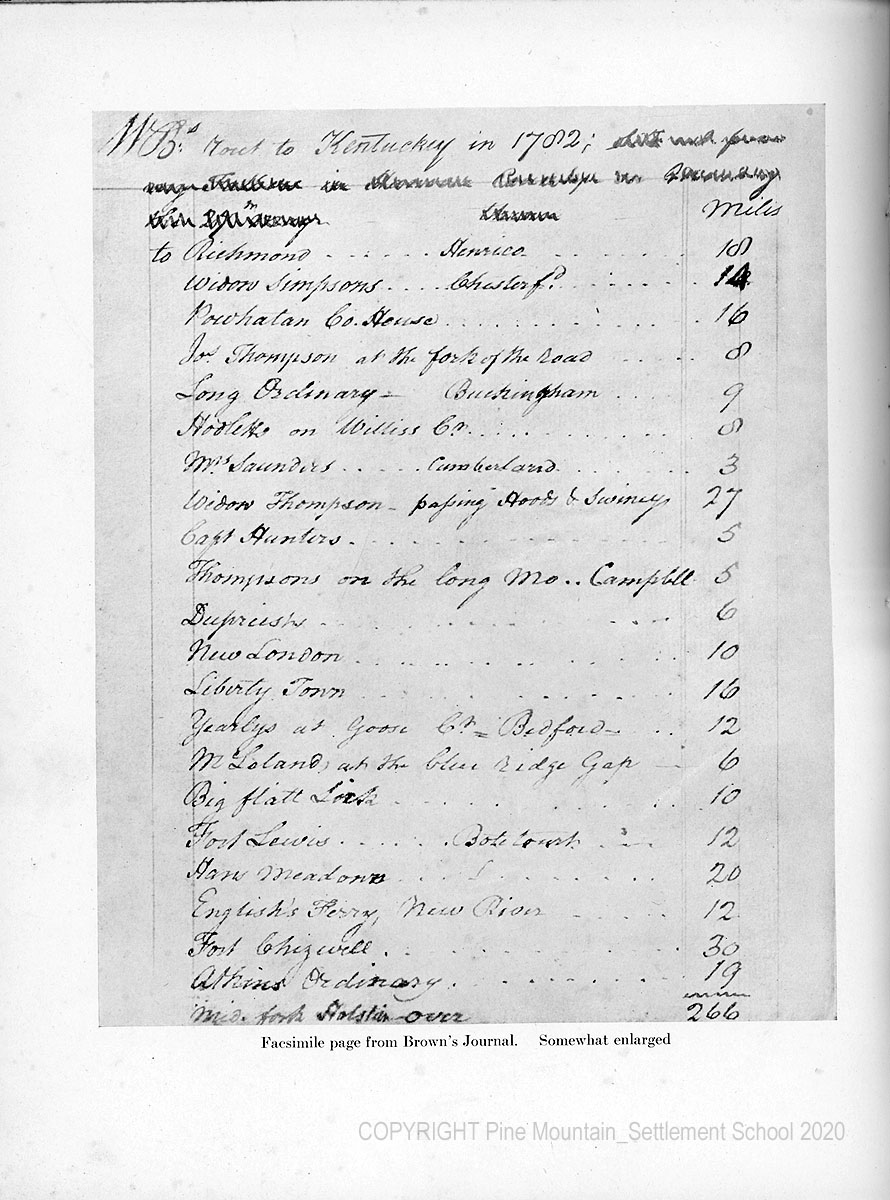 WB:s rout to Kentucky in 1782;
in
Miles
to Richmond ...... Henrico ...... 18
Widow Simpsons .... Chesterf.d ...... 14
Powhatan Co. House ...... 16
Jos Thompson at the fork of the road ..... 8
Long Ordinary = Buckingham .... 9
on Williss Cr. ...... 8
Mrs Saunders ..... Cumberland ...... 3
Widow Thompson - passing Hoods & Swineys 27
Capt Hunters ...... 5
Thompsons on the long Mo .. Campbll 5
Dupriests ...... 6
New London ...... 10
Liberty Town ...... 16
Yearlys at Goose Cr = Bedford = .. 12
McLolands at the blue ridge Gap — 6
Big flatt Lick ...... 10
Fort Lewis ...... Botetourt .... 12
Hans Meadows ...... 20
English's Ferry, New River ..... 12
Fort Chizwell ...... 30
Atkins Ordinary ...... 19
Mid. fork Holstin - over 266
Facsimile page from Brown's Journal. Somewhat enlarged
COPYRIGHT Pine Mountain_Settlement School 2020